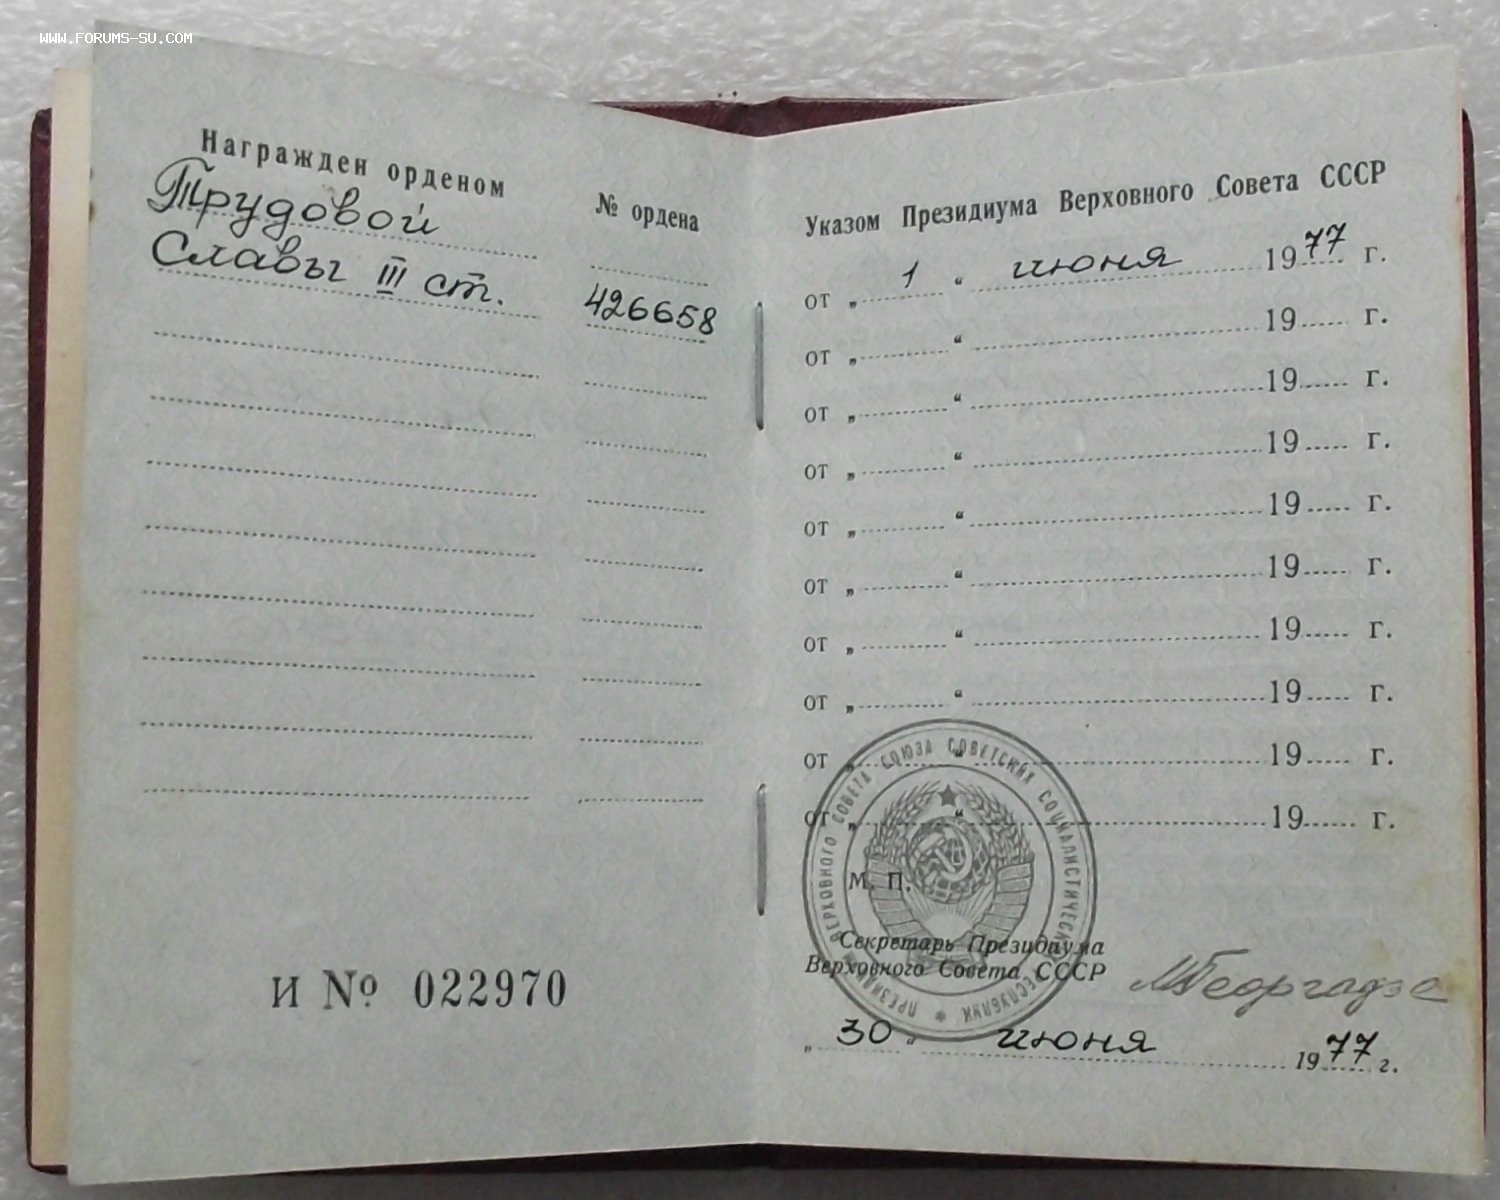 WWW.FORUMS-SU.COM
Награжден орденом
№ ордена
Трудовой
Славы III ст.
426658
И № 022970
Указом Президиума Верховного Совета СССР
от „ 1 “ июня 1977 г.
от „ “ 19 г.
от „ “ 19 г.
от „ “ 19 г.
от „ “ 19 г.
от „ “ 19 г.
от „ “ 19 г.
от „ “ 19 г.
от „ “ 19 г.
от „ “ 19 г.
М. П.
ПРЕЗИДИУМ ВЕРХОВНОГО СОВЕТА СОЮЗА СОВЕТСКИХ СОЦИАЛИСТИЧЕСКИХ РЕСПУБЛИК *
Секретарь Президиума
Верховного Совета СССР
МГеоргадзе
„ 30 “ июня 1977 г.